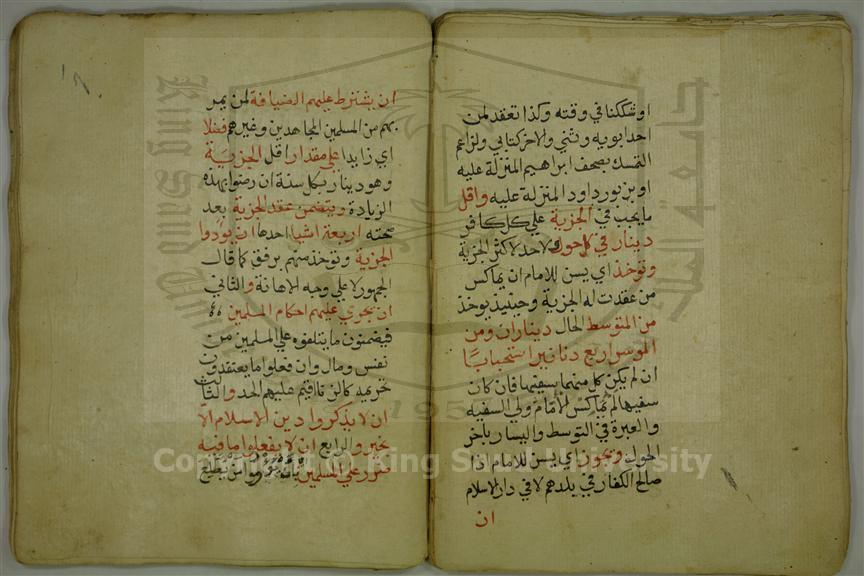 او شككنا في وقته وكذا تعقد لمن
احد ابويه وثني والاخر كتابي ولزاعم
التمسك بصحف ابراهيم المنزلة عليه
او بزبور داود المنزلة عليه واقل
ما يجب في الجزية على كل كافر
دينار في كل حول ولا حد لاكثر الجزية
وتوخذ اي يسن للامام ان يماكس
من عقدت له الجزية وحينيذ يوخذ
من المتوسط الحال ديناران ومن
الموسر اربع دنانير استحبابا
ان لم يكن كل منهما سفيها فان كان
سفيها لم يماكس الامام ولي السفيه
والعبرة في التوسط واليسار باخر
الحول ويجوز اي يسن للامام اذا
صالح الكفار في بلدهم لا في دار الاسلام
ان
ان يشترط عليهم الضيافة لمن يمر
بهم من المسلمين المجاهدين وغيرهم فضلا
اي زايدا على مقدار اقل الجزية
وهو دينار بكل سنة ان رضوا بهذه
الزيادة ويتضمن عقد الجزية بعد
صحته اربعة اشيا احدها ان يودوا
الجزية وتوخذ منهم برفق كما قال
الجمهور لا على وجه الاهانة والثاني
ان يجري عليهم احكام المسلمين
فيضمنون ما يتلفوه على المسلمين من
نفس ومال وان فعلوا ما يعتقدون
تحريمه كالزنا اقيم عليهم الحد والثالث
ان لا يذكروا دين الاسلام الا
بخير والرابع ان لا يفعلوا ما فيه
ضرر على المسلمين
King Saud University
جامعة الملك
195
Copyright © King Saud University